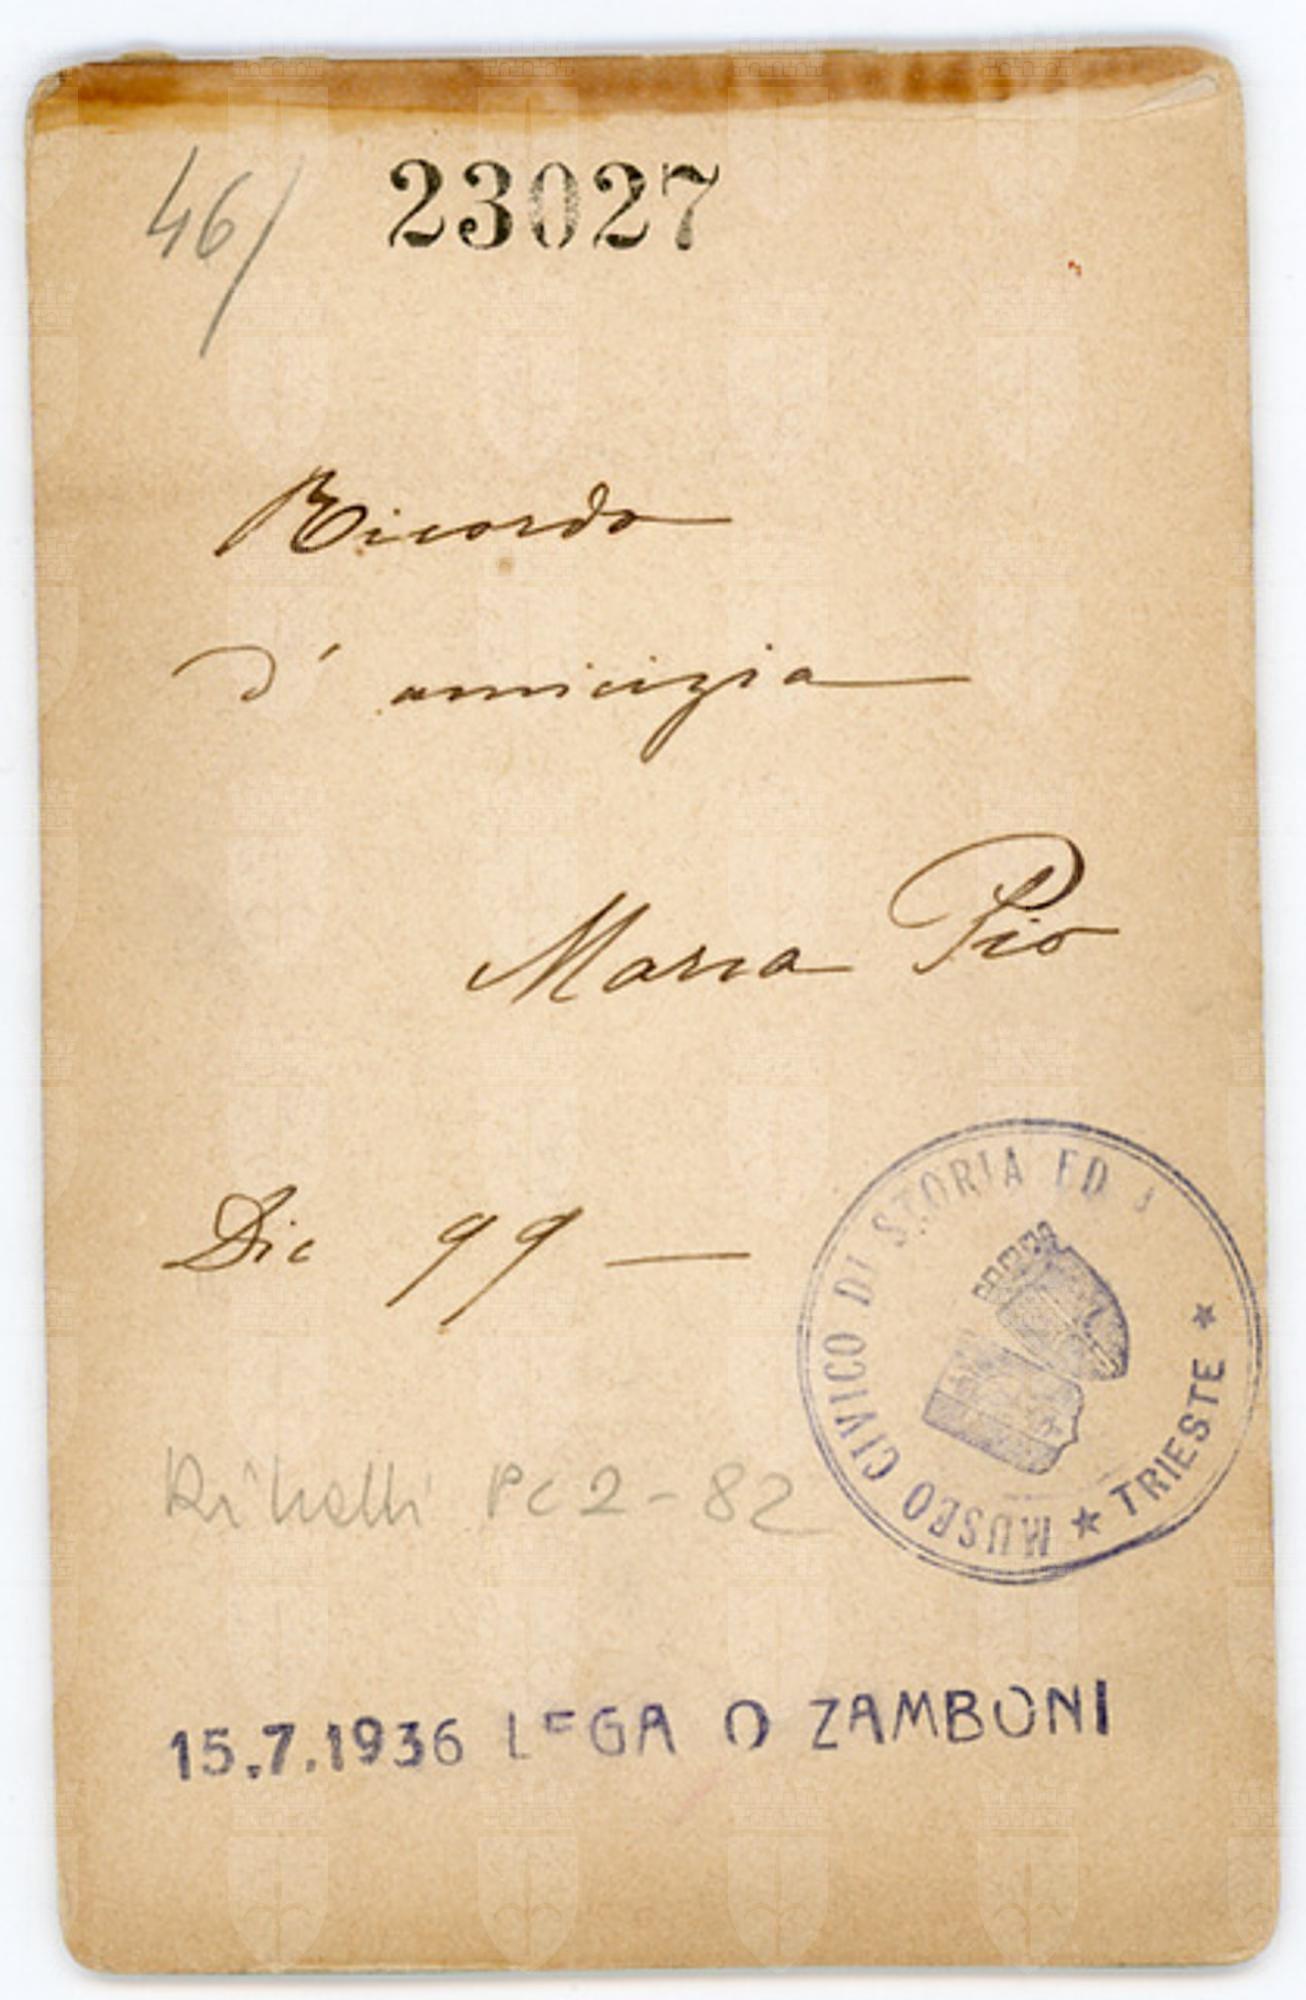 46/ 23027
Ricordo
d' amicizia
Maria Pio
Dic 99 —
MUSEO CIVICO DI STORIA ED A
★ TRIESTE ★
Pc 2-82
15.7.1936 LEGA O ZAMBONI